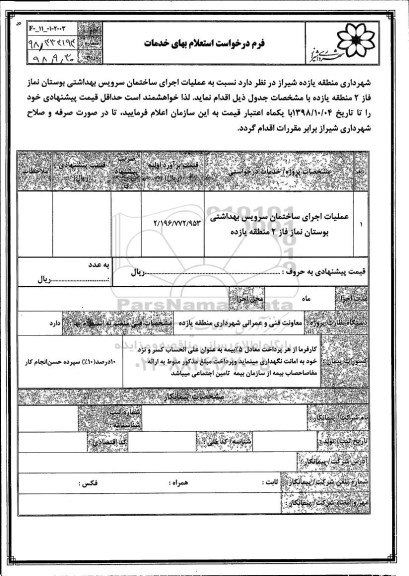 F-۰_۱۱_۰۱-۲۰۰۳
فرم درخواست استعلام بهای خدمات
شهرداری منطقه یازده شیراز در نظر دارد نسبت به عملیات اجرای ساختمان سرویس بهداشتی بوستان نماز
فاز ۲ منطقه یازده با مشخصات جدول ذیل اقدام نماید. لذا خواهشمند است حداقل قیمت پیشنهادی خود
را تا تاریخ ۱۳۹۸/۱۰/۰۴با یکماه اعتبار قیمت به این سازمان اعلام فرمایید، تا در صورت صرفه و صلاح
شهرداری شیراز برابر مقررات اقدام گردد.
مشخصات پروژه/ خدمات درخواستی
ملاحظات
۱
عملیات اجرای ساختمان سرویس بهداشتی
بوستان نماز فاز ۲ منطقه یازده
۲/۱۹۶/۷۷۲/۹۵۳
قیمت پیشنهادی به حروف : ریال
به عدد
ریال
مدت اجرا
ماه
محل اجرا
معاونت فنی و عمرانی شهرداری منطقه یازده
دارد
کارفرما از هر پرداخت معادل ۵٪بیمه به عنوان علی الحساب کسر و نزد
خود به امانت نگهداری مینماید وپرداخت مبلغ مذکور منوط به ارائه
مفاصاحساب بیمه از سازمان بیمه تامین اجتماعی میباشد
۱۰درصد(۱۰٪) سپرده حسن‌انجام کار
مشخصات پیمانکار
نام شرکت/ پیمانکار
شماره ثبت
شناسنامه
تاریخ ثبت / تولد :
شناسه / کد ملی :
کد اقتصادی :
آدرس شرکت/ پیمانکار:
شماره تلفن شرکت/ پیمانکار
ثابت :
همراه :
فکس :
مهر و امضاء شرکت/ پیمانکار:
ParsNamadData